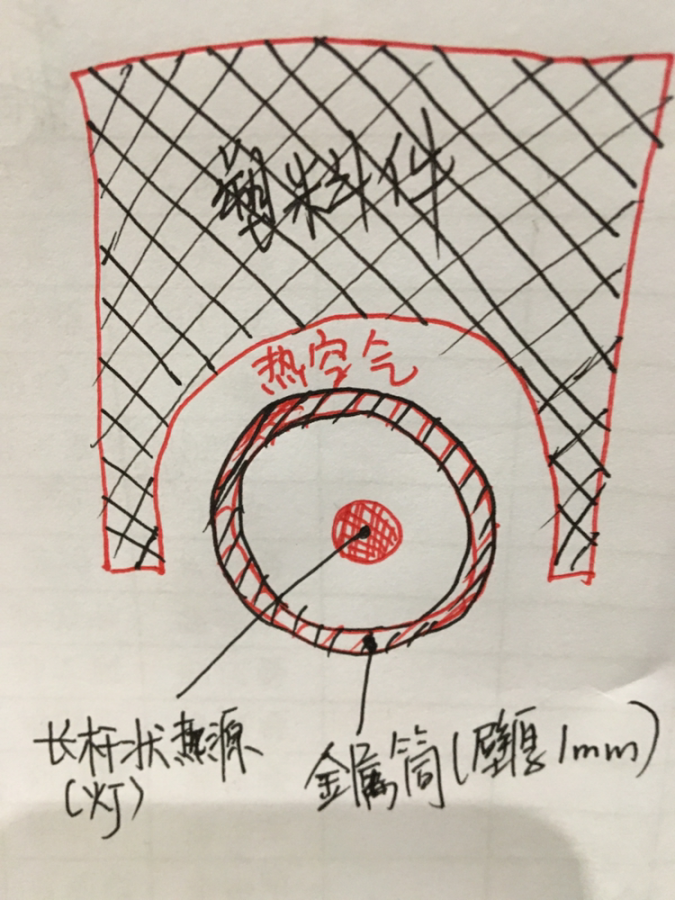 塑料件
热空气
长杆状热源
(灯)
金属筒(壁厚1mm)